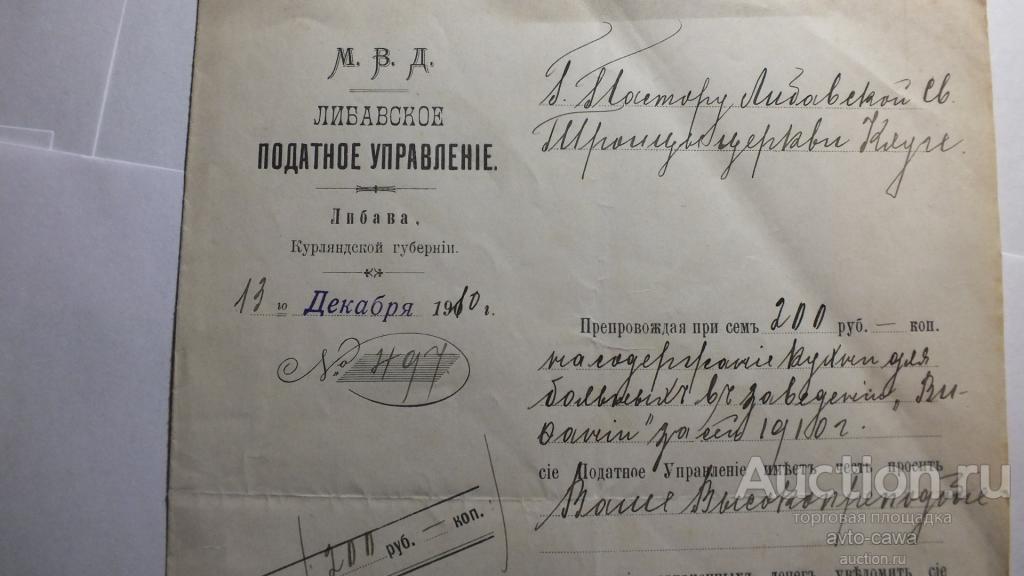 М. В. Д.
ЛИБАВСКОЕ
ПОДАТНОЕ УПРАВЛЕНІЕ.
Либава,
Курляндской губерніи.
13 го Декабря 1910 г.
№ 497
Г. Пастору Либавской Св.
Троицы церкви Клуге.
Препровождая при семъ 200 руб. — коп.
на содержаніе кухни для
больныхъ въ заведеніи „Ви-
ѳаніи" за 1910 г.
сіе Податное Управленіе имѣетъ честь просить
Ваше Высокопреподобіе
200 руб. — коп.
денегъ увѣдомить сіе
Auction.ru
торговая площадка
avto-cawa
auction.ru